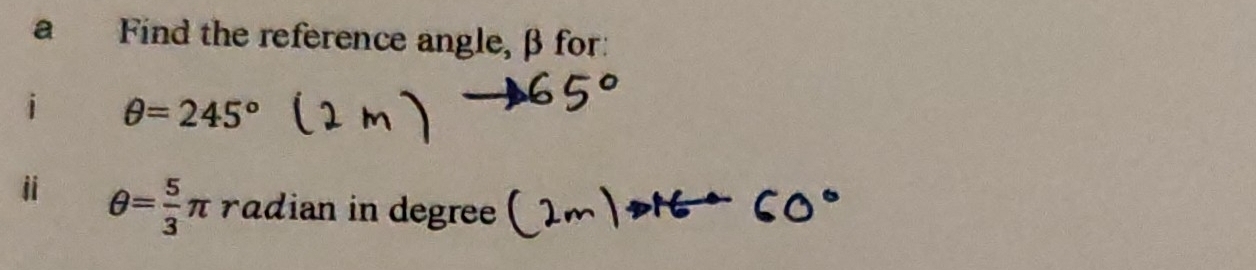 a Find the reference angle, β for:
i θ= 245° (2 m) → 65°
ii θ= 5/3 π radian in degree (2m) 60°